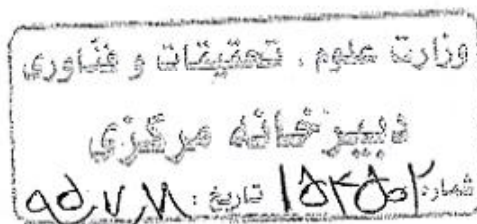 وزارت علوم ، تحقیقات و فنّاوری
دبیرخانه مرکزی
شماره: ۱۵۲۵۰۲ تاریخ: ۹۵،۷،۲۸